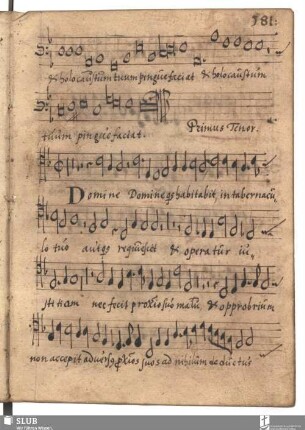 181.
& holocaustum tuum pingue faciat & holocaustum
tuum pingue faciat.
Primus Tenor.
Domine Domine qs habitabit in tabernacu
lo tuo aut qs requiescet & operatur iu,
stitiam nec fecit proximo suo malū & opprobrium
non accepit adversq suos ad nihilum deductus
SLUB